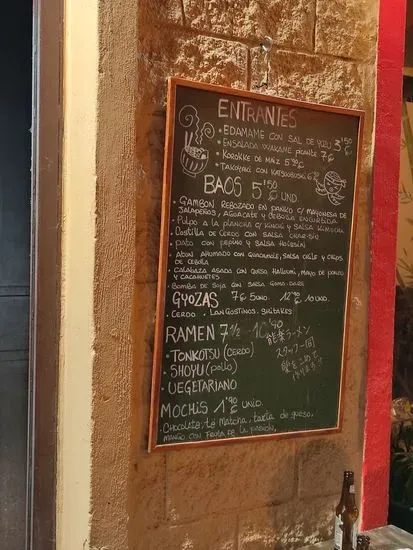 ENTRANTES
• EDAMAME CON SAL DE YUZU 3'50€
• ENSALADA WAKAME picante 7€
• KOROKKE DE MAÍZ 5'90€
• TAKOYAKI CON KATSUOBUSHI
BAOS 5'50€ UND
• GAMBON REBOZADO EN PANKO c/ MAYONESA DE
JALAPEÑOS, AGUACATE y CEBOLLA ENCURTIDA
• Pulpo A LA PLANCHA c/ KIMCHI y SALSA
• Costilla de Cerdo con SALSA CHAR-SIU
• pato con pepino y SALSA HOISIN
• ATUN AHUMADO CON GUACAMOLE, SALSA CHILE y CHIPS
DE CEBOLLA
• CALABAZA ASADA con QUESO HALLOUMI, MAYO DE
y CACAHUETES
• Bomba de soja con SALSA GOMA DARE
GYOZAS 7€ 5UND 12'90 10 UND.
• CERDO • LANGOSTINOS • SHIITAKES
RAMEN 7 1/2 - 10'90
• TONKOTSU (CERDO)
• SHOYU (pollo)
• VEGETARIANO
ラーメン
スタッフ一同
MOCHIS 1'90€ UNID.
• Chocolate, Té Matcha, tarta de queso,
MANGO CON FRUTA DE LA PASIÓN,